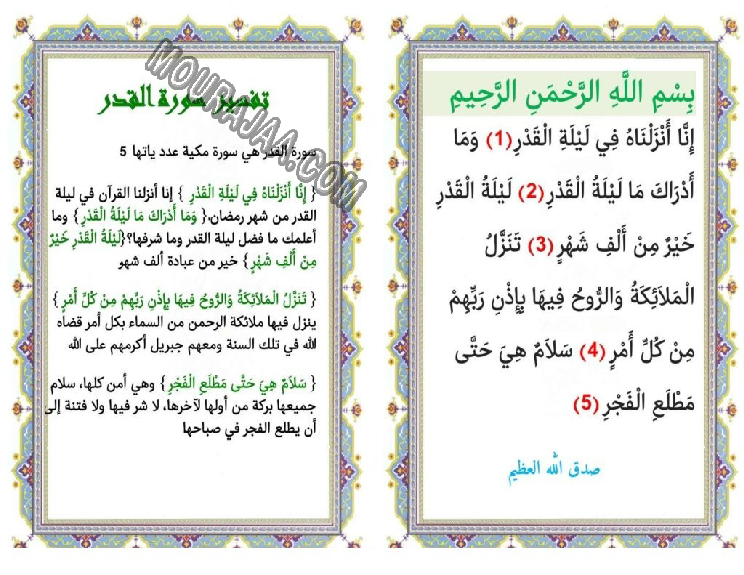 بِسْمِ اللَّهِ الرَّحْمَنِ الرَّحِيمِ
إِنَّا أَنْزَلْنَاهُ فِي لَيْلَةِ الْقَدْرِ (1) وَمَا
أَدْرَاكَ مَا لَيْلَةُ الْقَدْرِ (2) لَيْلَةُ الْقَدْرِ
خَيْرٌ مِنْ أَلْفِ شَهْرٍ (3) تَنَزَّلُ
الْمَلَائِكَةُ وَالرُّوحُ فِيهَا بِإِذْنِ رَبِّهِمْ
مِنْ كُلِّ أَمْرٍ (4) سَلَامٌ هِيَ حَتَّى
مَطْلَعِ الْفَجْرِ (5)
صدق الله العظيم
تفسير سورة القدر
سورة القدر هي سورة مكية عدد ياتها 5
{ إِنَّا أَنْزَلْنَاهُ فِي لَيْلَةِ الْقَدْرِ } إنا أنزلنا القرآن في ليلة
القدر من شهر رمضان.{ وَمَا أَدْرَاكَ مَا لَيْلَةُ الْقَدْرِ} وما
أعلمك ما فضل ليلة القدر وما شرفها؟{لَيْلَةُ الْقَدْرِ خَيْرٌ
مِنْ أَلْفِ شَهْرٍ} خير من عبادة ألف شهر
{ تَنَزَّلُ الْمَلَائِكَةُ وَالرُّوحُ فِيهَا بِإِذْنِ رَبِّهِمْ مِنْ كُلِّ أَمْرٍ }
ينزل فيها ملائكة الرحمن من السماء بكل أمر قضاه
الله في تلك السنة ومعهم جبريل أكرمهم على الله
{ سَلَامٌ هِيَ حَتَّى مَطْلَعِ الْفَجْرِ} وهي أمن كلها، سلام
جميعها بركة من أولها لآخرها، لا شر فيها ولا فتنة إلى
أن يطلع الفجر في صباحها
MOURAJAA.COM